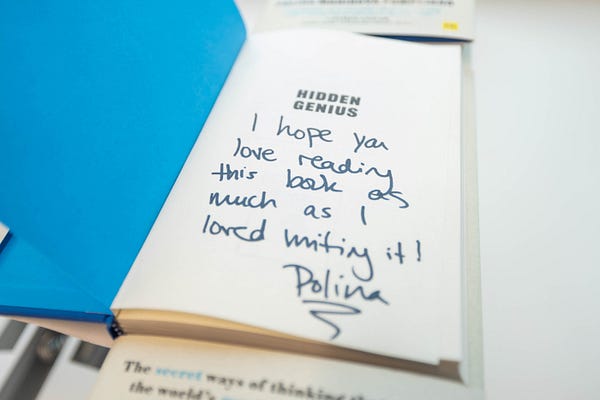 HIDDEN
GENIUS
I hope you
love reading
this book as
much as I
loved writing it!
Polina
The secret ways of thinking
the world's